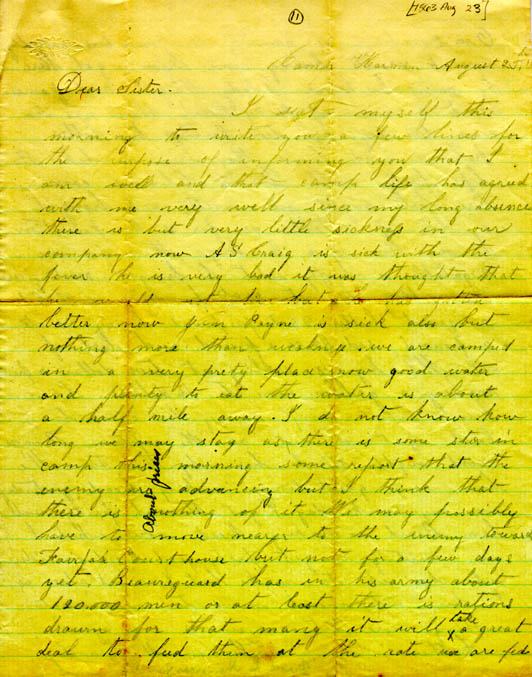 11
[1863 Aug 23]
Camp Harman August 23
Dear Sister.
I seat myself this
morning to write you a few lines for
the purpose of informing you that I
am well and that camp life has agreed
with me very well since my long absence
there is but very little sickness in our
company now A S Craig is sick with the
fever he is very bad it was thought that
he would not but he has gotten
better now Payne is sick also but
nothing more than weakness we are camped
in a very prety place now good water
and plenty to eat the water is about
a half mile away. I do not know how
long we may stay as there is some stir in
camp this morning some report that the
enemy are advancing but I think that
there is nothing of it We may possibly
have to move nearer to the enemy toward
Fairfax Court house but not for a few days
yet. Beaureguard has in his army about
120.000 men or at least there is rations
drawn for that many it will take a great
deal to feed them at the rate we are fed
About